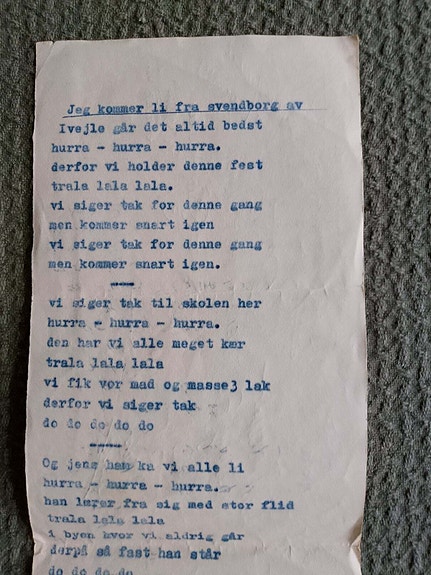 Jeg kommer li fra svendborg av
Ivejle går det altid bedst
hurra - hurra - hurra.
derfor vi holder denne fest
trala lala lala.
vi siger tak for denne gang
men kommer snart igen
vi siger tak for denne gang
men kommer snart igen.
vi siger tak til skolen her
hurra - hurra - hurra.
den har vi alle meget kær
trala lala lala
vi fik vor mad og masse3 lak
derfor vi siger tak
do do do do do
Og jens ham ka vi alle li
hurra - hurra - hurra.
han lærer fra sig med stor flid
trala lala lala
i byen hvor vi aldrig går
derpå så fast han står
do do do do